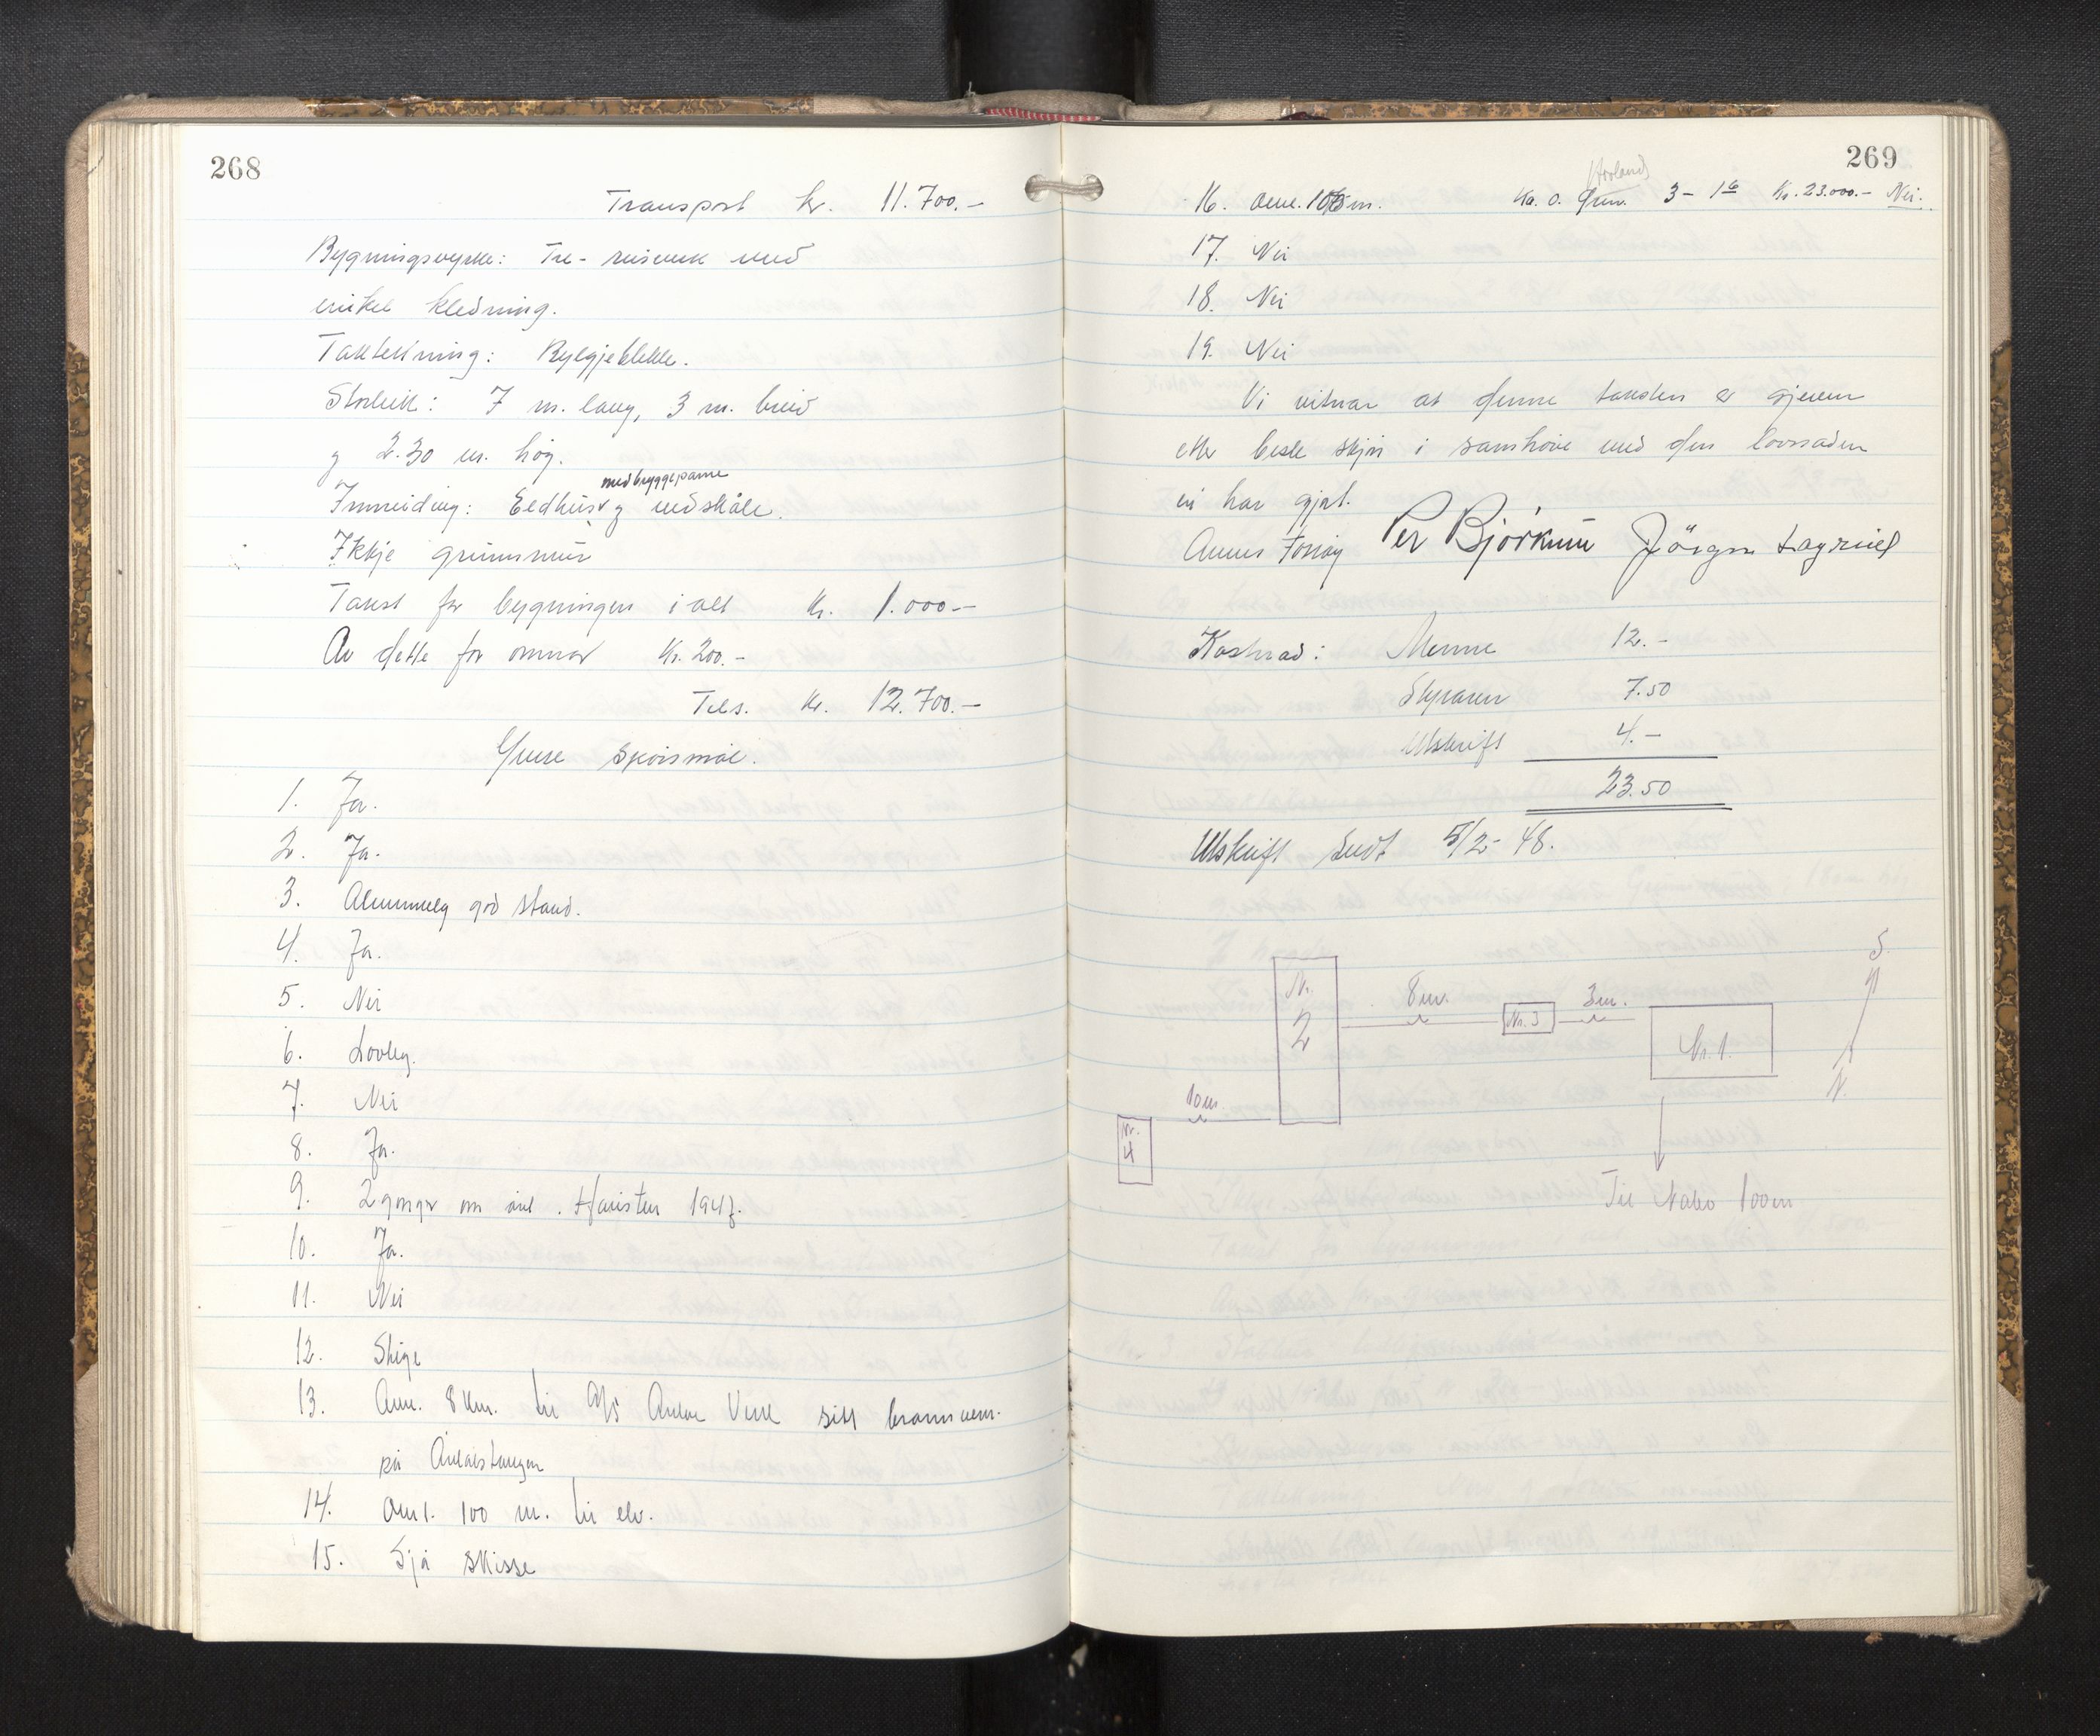 268
Transport kr. 11.700.-
Bygningsvyrke: Tre-reisverk med
enkel kledning.
Taktekning: Bylgjeblekk.
Storleik: 7 m. lang, 3 m. breid
og 2.30 m. høg.
med bryggepanne
Innreiding: Eldhus og vedskåle.
Ikkje grunnmur
Takst for bygningen i alt Kr. 1.000.-
Av dette for omnar Kr. 200.-
Tils. Kr. 12.700.-
Ymse spørsmål.
1. Ja.
2. Ja.
3. Alminneleg god stand.
4. Ja.
5. Nei
6. Lovleg.
7. Nei
8. Ja.
9. 2 gonger om året. Hausten 1947.
10. Ja.
11. Nei
12. Stige
13. Om. 8 km. til A/S Årdal Verk sitt brannvern
på Årdalstangen
14. Oml. 100 m. til elv.
15. Sjå skisse
269
16. Oml. 100 m. Ka. o. Hovland 3 - 1 Kr. 23.000.- Nei.
17. Nei
18. Nei
19. Nei
Vi vitnar at denne taksten er gjeven
etter beste skjøn i samhøve med den lovnaden
vi har gjort.
Per Bjørkum Jörgen
Kostnad: Menne 12.-
Styraren 7.50
Utskrift 4.-
23.50
Utskrift sendt 5/2-48.
S.
Nr. 2
8 m.
Nr. 3
3 m.
Nr. 1.
N.
10 m.
Nr. 4
Til Nabo 100 m